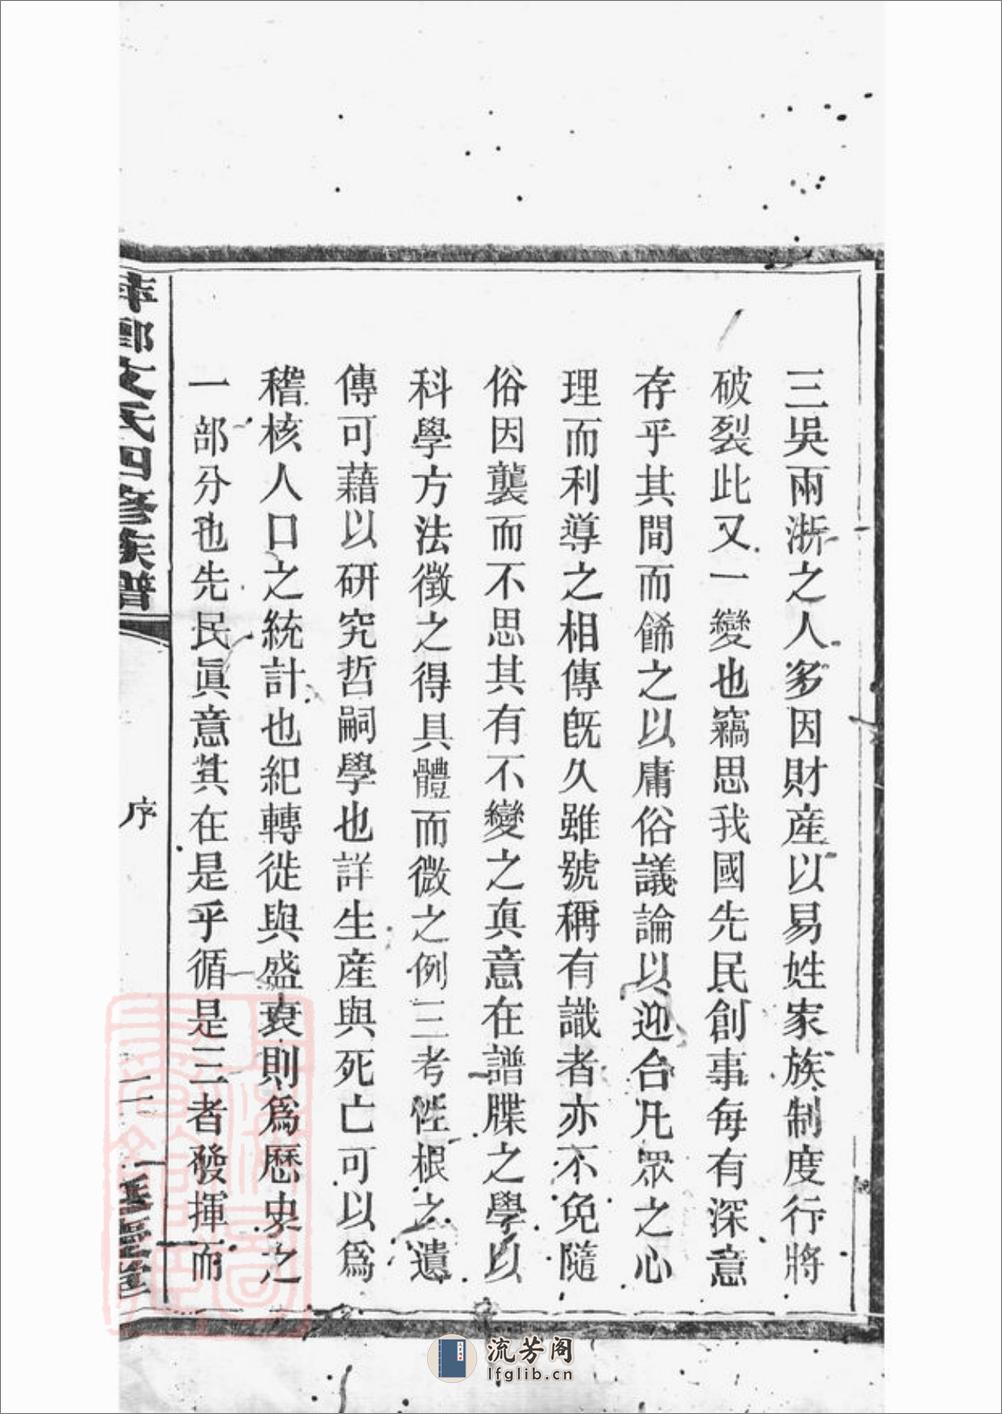 三吳兩浙之人多因財產以易姓家族制度行將
破裂此又一變也竊思我國先民創事每有深意
存乎其間而餙之以庸俗議論以迎合凡眾之心
理而利導之相傳旣久雖號稱有識者亦不免隨
俗因襲而不思其有不變之眞意在譜牒之學以
科學方法徵之得具體而微之例三考性根之遺
傳可藉以研究哲嗣學也詳生產與死亡可以爲
稽核人口之統計也紀轉徙與盛衰則爲歷史之
一部分也先民眞意其在是乎循是三者發揮而
萍鄉文氏四修族譜
序
二
流芳阁
lfglib.cn